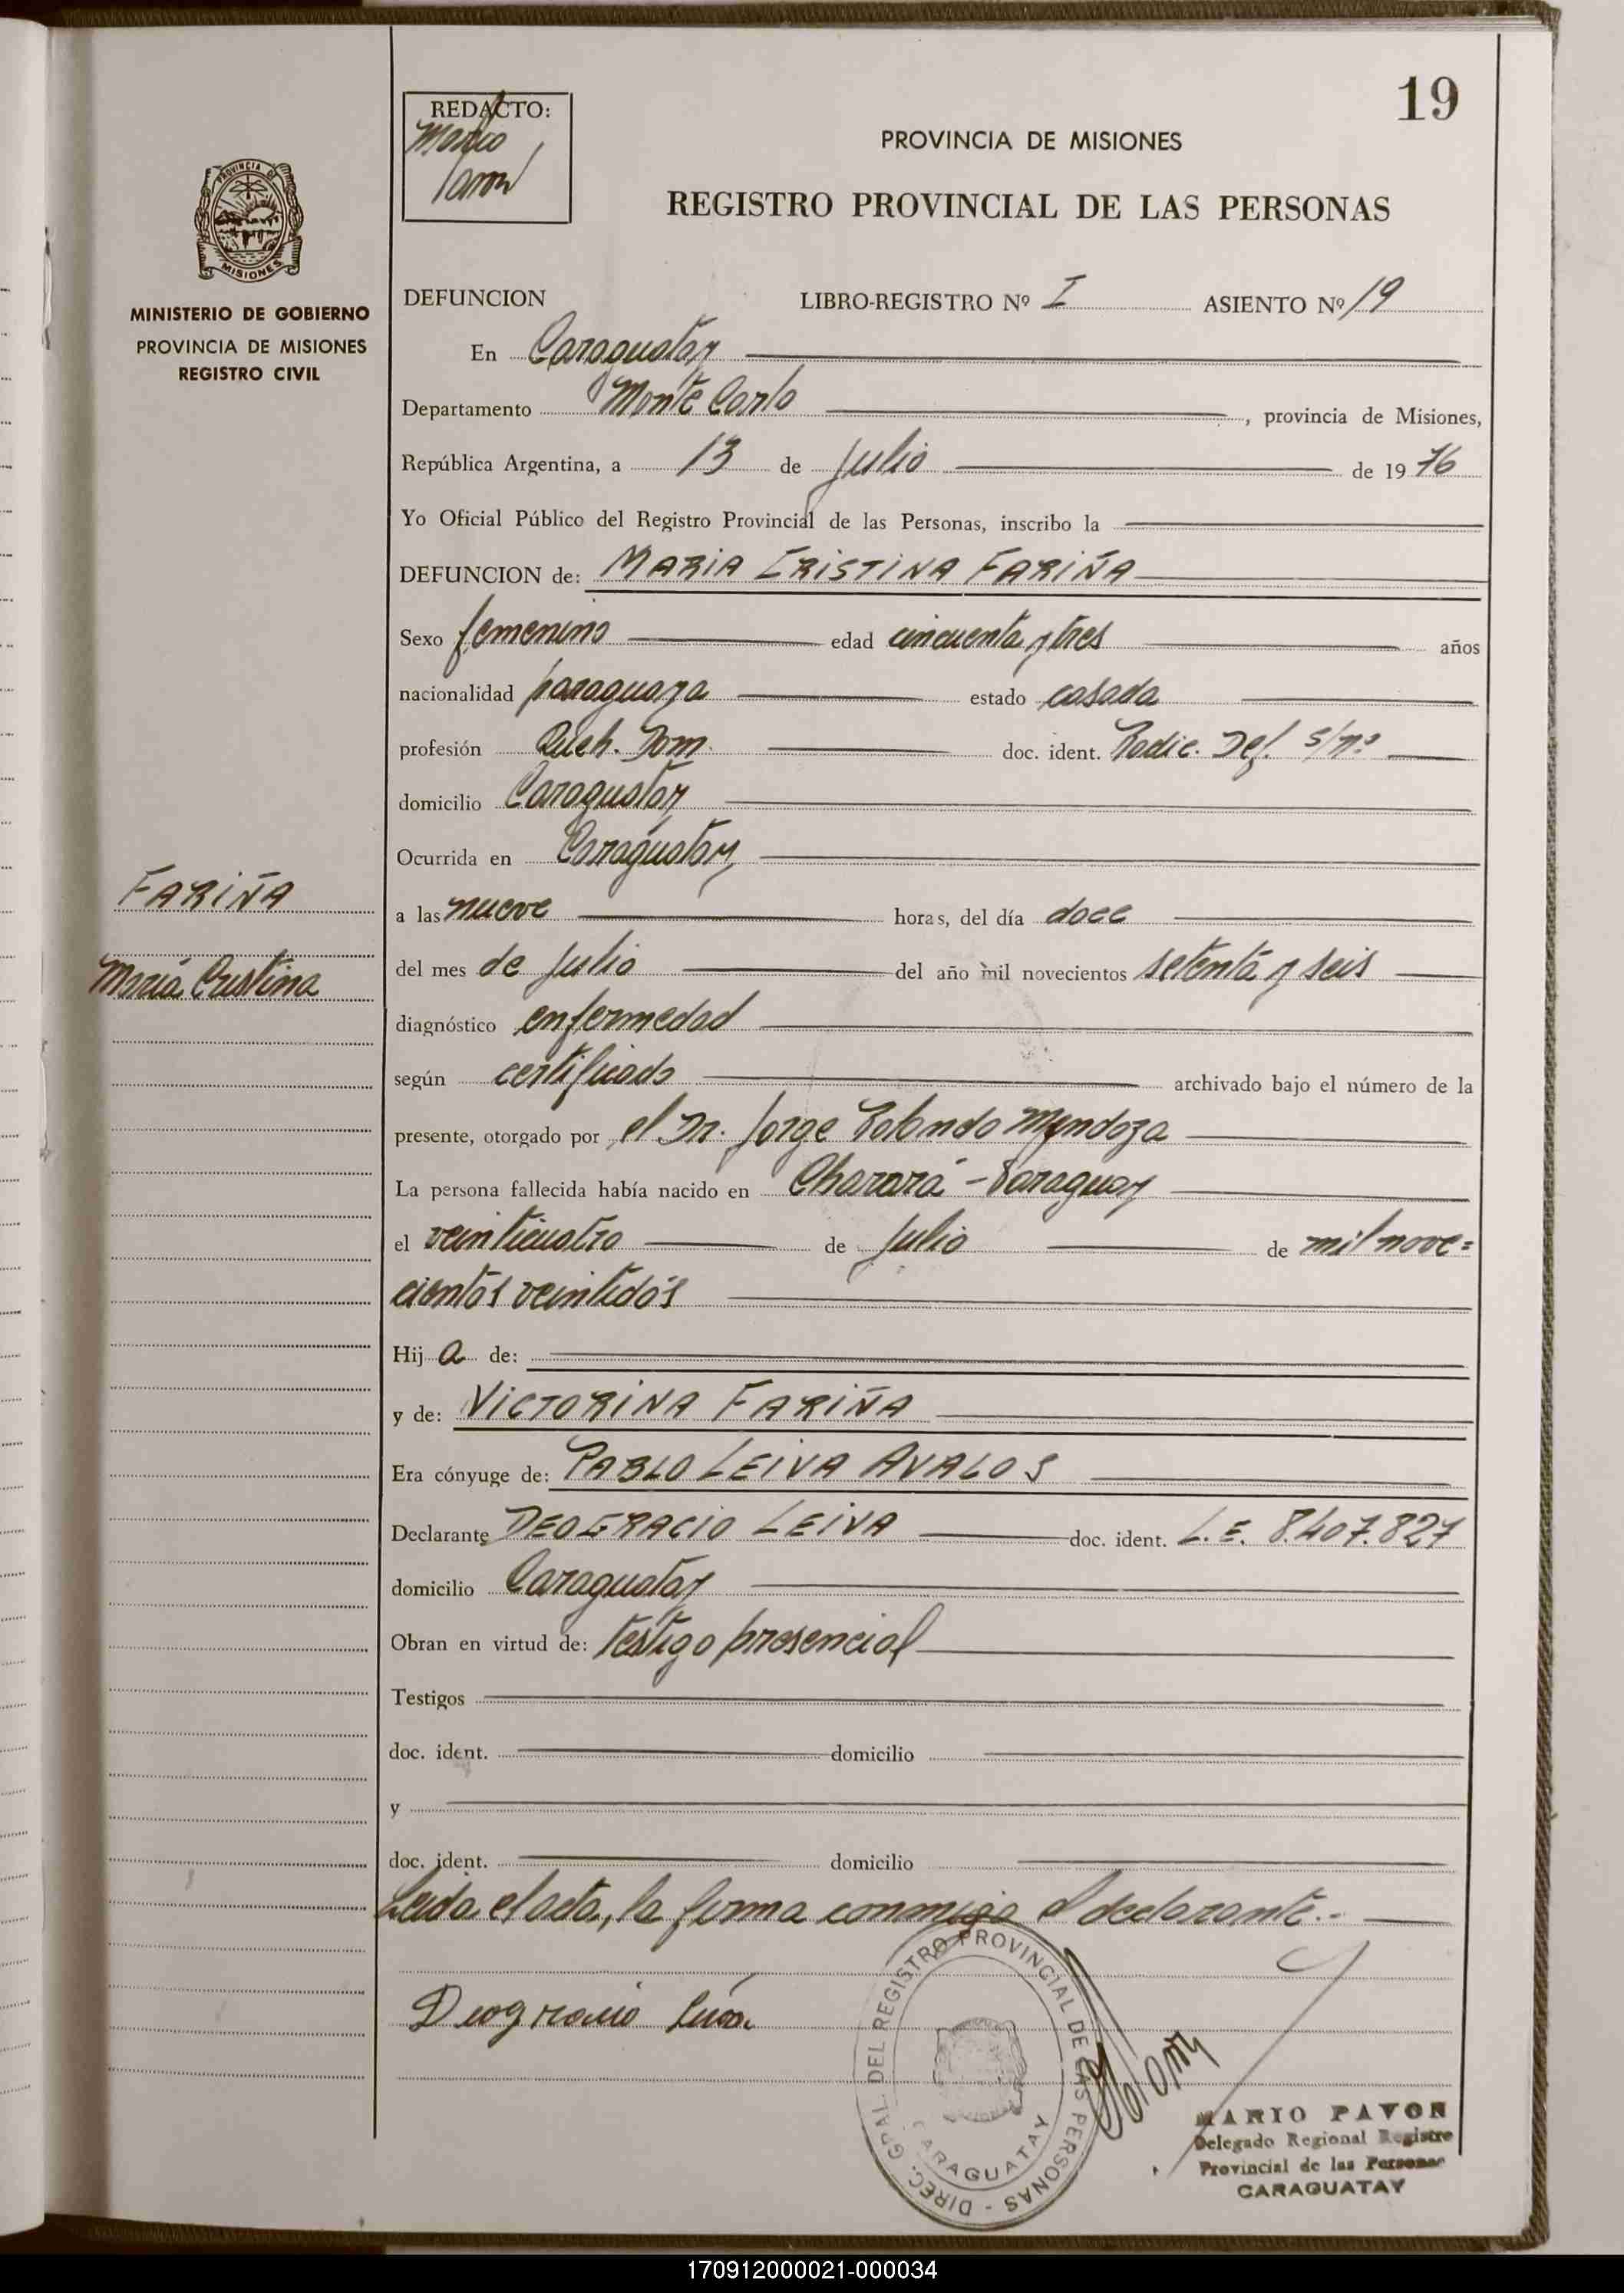 19
REDACTO:
Mario
Pavon
PROVINCIA DE MISIONES
REGISTRO PROVINCIAL DE LAS PERSONAS
PROVINCIA DE
MISIONES
MINISTERIO DE GOBIERNO
PROVINCIA DE MISIONES
REGISTRO CIVIL
DEFUNCION LIBRO-REGISTRO Nº I ASIENTO Nº 19
En Caraguatay
Departamento Monte Carlo, provincia de Misiones,
República Argentina, a 13 de Julio de 1976
Yo Oficial Público del Registro Provincial de las Personas, inscribo la
DEFUNCION de: MARIA CRISTINA FARIÑA
Sexo femenino edad cincuenta y tres años
nacionalidad paraguaya estado casada
profesión Queh. Dom. doc. ident. Radic. Def. s/nº
domicilio Caraguatay
Ocurrida en Caraguatay
FARIÑA
María Cristina
a las nueve horas, del día doce
del mes de Julio del año mil novecientos setenta y seis
diagnóstico enfermedad
según certificado archivado bajo el número de la
presente, otorgado por el Dr. Jorge Rolando Mendoza
La persona fallecida había nacido en Chararà - Paraguay
el veinticuatro de Julio de mil nove=
cientos veintidós
Hij a de:
y de: VICTORINA FARIÑA
Era cónyuge de: PABLO LEIVA AVALOS
Declarante DEOGRACIO LEIVA doc. ident. L.E. 8.407.827
domicilio Caraguatay
Obran en virtud de: testigo presencial
Testigos
doc. ident. domicilio
y
doc. ident. domicilio
Leida el acta, la firma conmigo el declarante.-
Deogracio Leiva
DIREC. GRAL. DEL REGISTRO PROVINCIAL DE LAS PERSONAS -
CARAGUATAY
MARIO PAVON
Delegado Regional Registro
Provincial de las Personas
CARAGUATAY
170912000021-000034